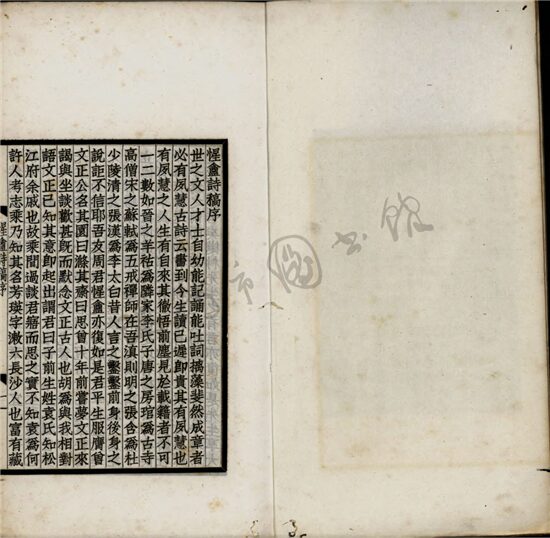 惺盦詩稿序
世之文人才士自幼能記誦能吐詞摛藻斐然成章者
必有夙慧古詩云書到今生讀已遲卽貴其有夙慧也
有夙慧之人生有自來其徹悟前塵見於載籍者不可
一二數如晉之羊祜爲隣家李氏子唐之房琯爲古寺
高僧宋之蘇軾爲五戒禪師在吾滇則明之張含爲杜
少陵清之張漢爲李太白昔人言之鑿鑿前身後身之
說詎不信耶吾友周君惺盦亦復如是君平生服膺曾
文正公名其園曰滌其齋曰思曾十年前嘗夢文正來
謁與坐談歡甚旣而默念文正古人也胡爲與我相對
語文正已知其意卽起出謂君曰子前生姓袁氏知松
江府余戚也故乘間過談君寤而思之實不知袁爲何
許人考志乘乃知其名芳瑛字漱六長沙人也富有藏
惺盦詩稿序
一
市圖書館